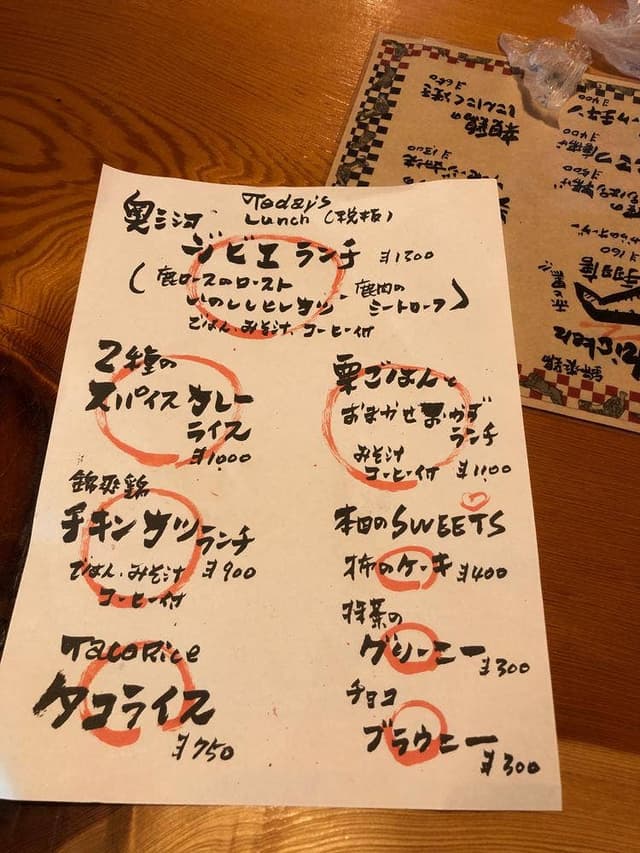 Today's
Lunch (税抜)
奥三河
ジビエランチ ¥1300
(鹿ロースのロースト 鹿肉の
いのししヒレカツ ミートローフ)
ごはん、みそ汁、コーヒー付
2種の
スパイスカレー
ライス
¥1,000
錦爽鶏
チキンカツランチ
ごはん、みそ汁 ¥900
コーヒー付
Taco Rice
タコライス
¥750
栗ごはんと
おまかせおかず
ランチ
みそ汁
コーヒー付 ¥1,100
本日のSWEETS
柿のケーキ ¥400
抹茶の
グリーニー
¥300
チョコ
ブラウニー
¥300
chicken
錦爽鶏
手羽唐
¥160
¥400
¥650